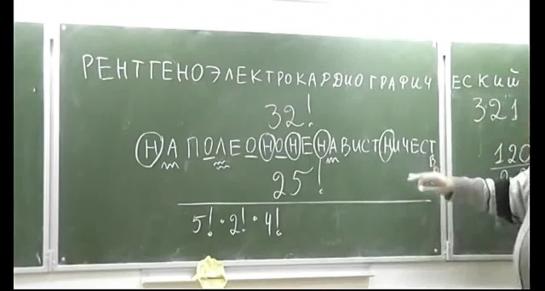 РЕНТГЕНОЭЛЕКТРОКАРДИОГРАФИЧЕСКИЙ
32!
321
НАПОЛЕОНОНЕНАВИСТНИЧЕСТВ
120
25!
5! · 2! · 4!